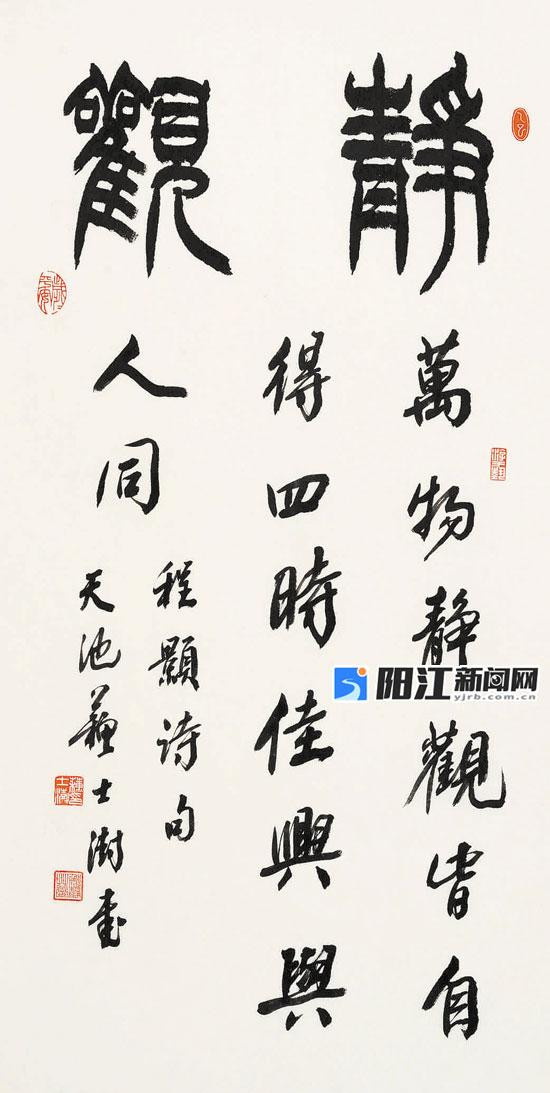 靜觀
萬物靜觀皆自
得四時佳興與
人同
程顥詩句
天池蘇士澍書
阳江新闻网
yjrb.com.cn